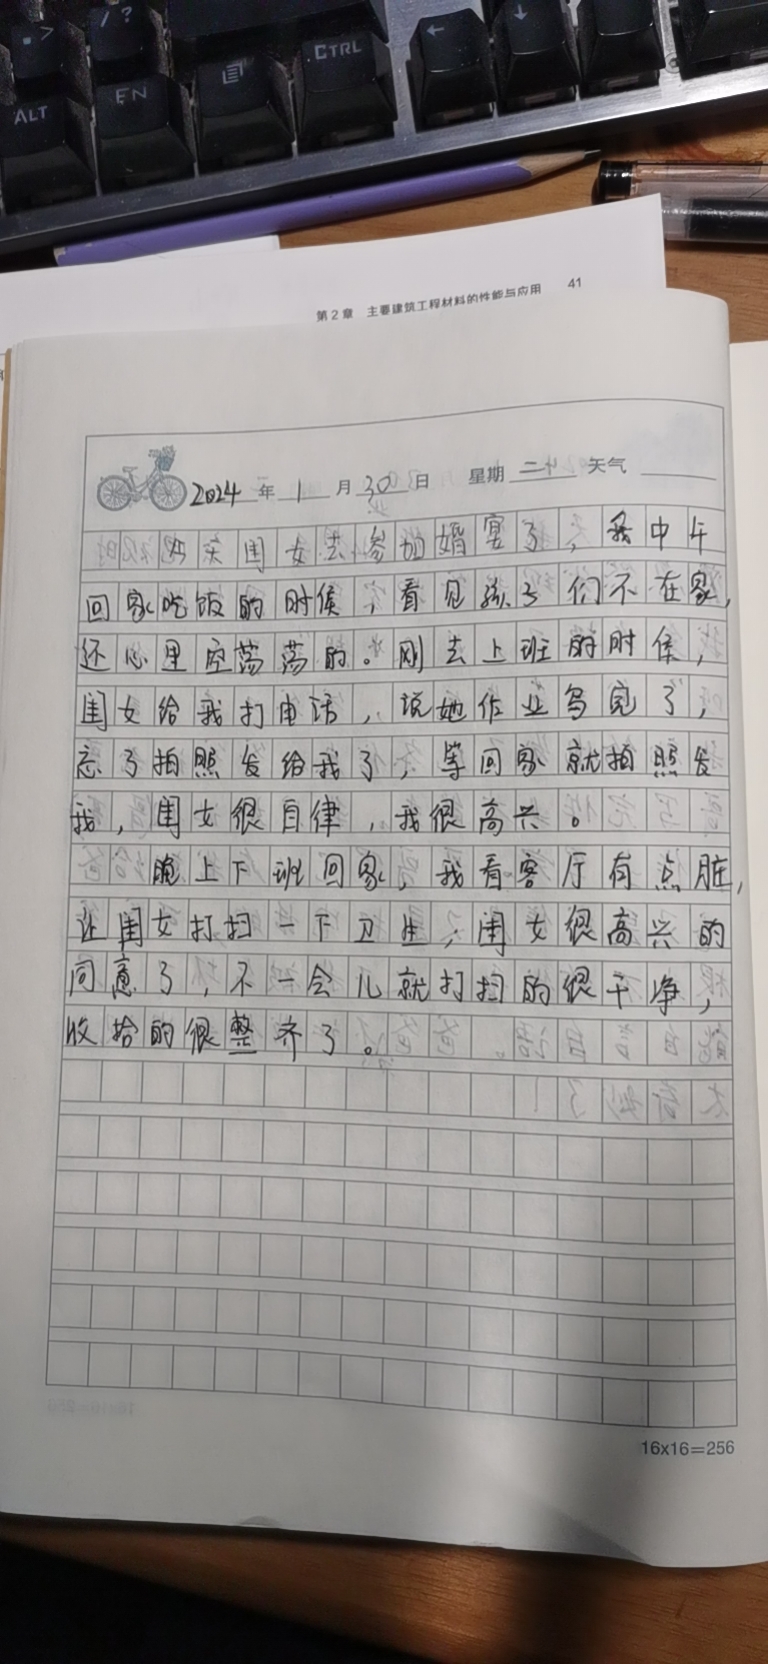 . >
/ ?
CTRL
←
↓
ALT
EN
第2章 主要建筑工程材料的性能与应用 41
2024年 1月 30日 星期二 天气
今天闺女去参加婚宴了，我中午
回家吃饭的时候，看见孩子们不在家，
还心里空荡荡的。刚去上班的时候，
闺女给我打电话，说她作业写完了，
忘了拍照发给我了，等回家就拍照发
我，闺女很自律，我很高兴。
晚上下班回家，我看客厅有点脏，
让闺女打扫一下卫生，闺女很高兴的
同意了，不一会儿就打扫的很干净，
收拾的很整齐了。
16x16=256